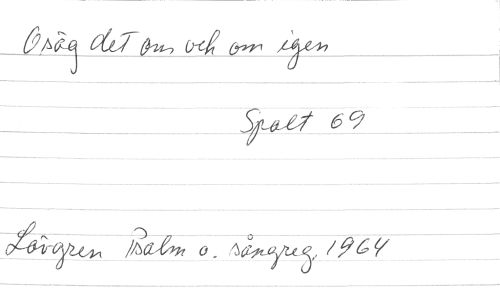 O säg det om och om igen
Spalt 69
Lövgren Psalm o. sångreg. 1964